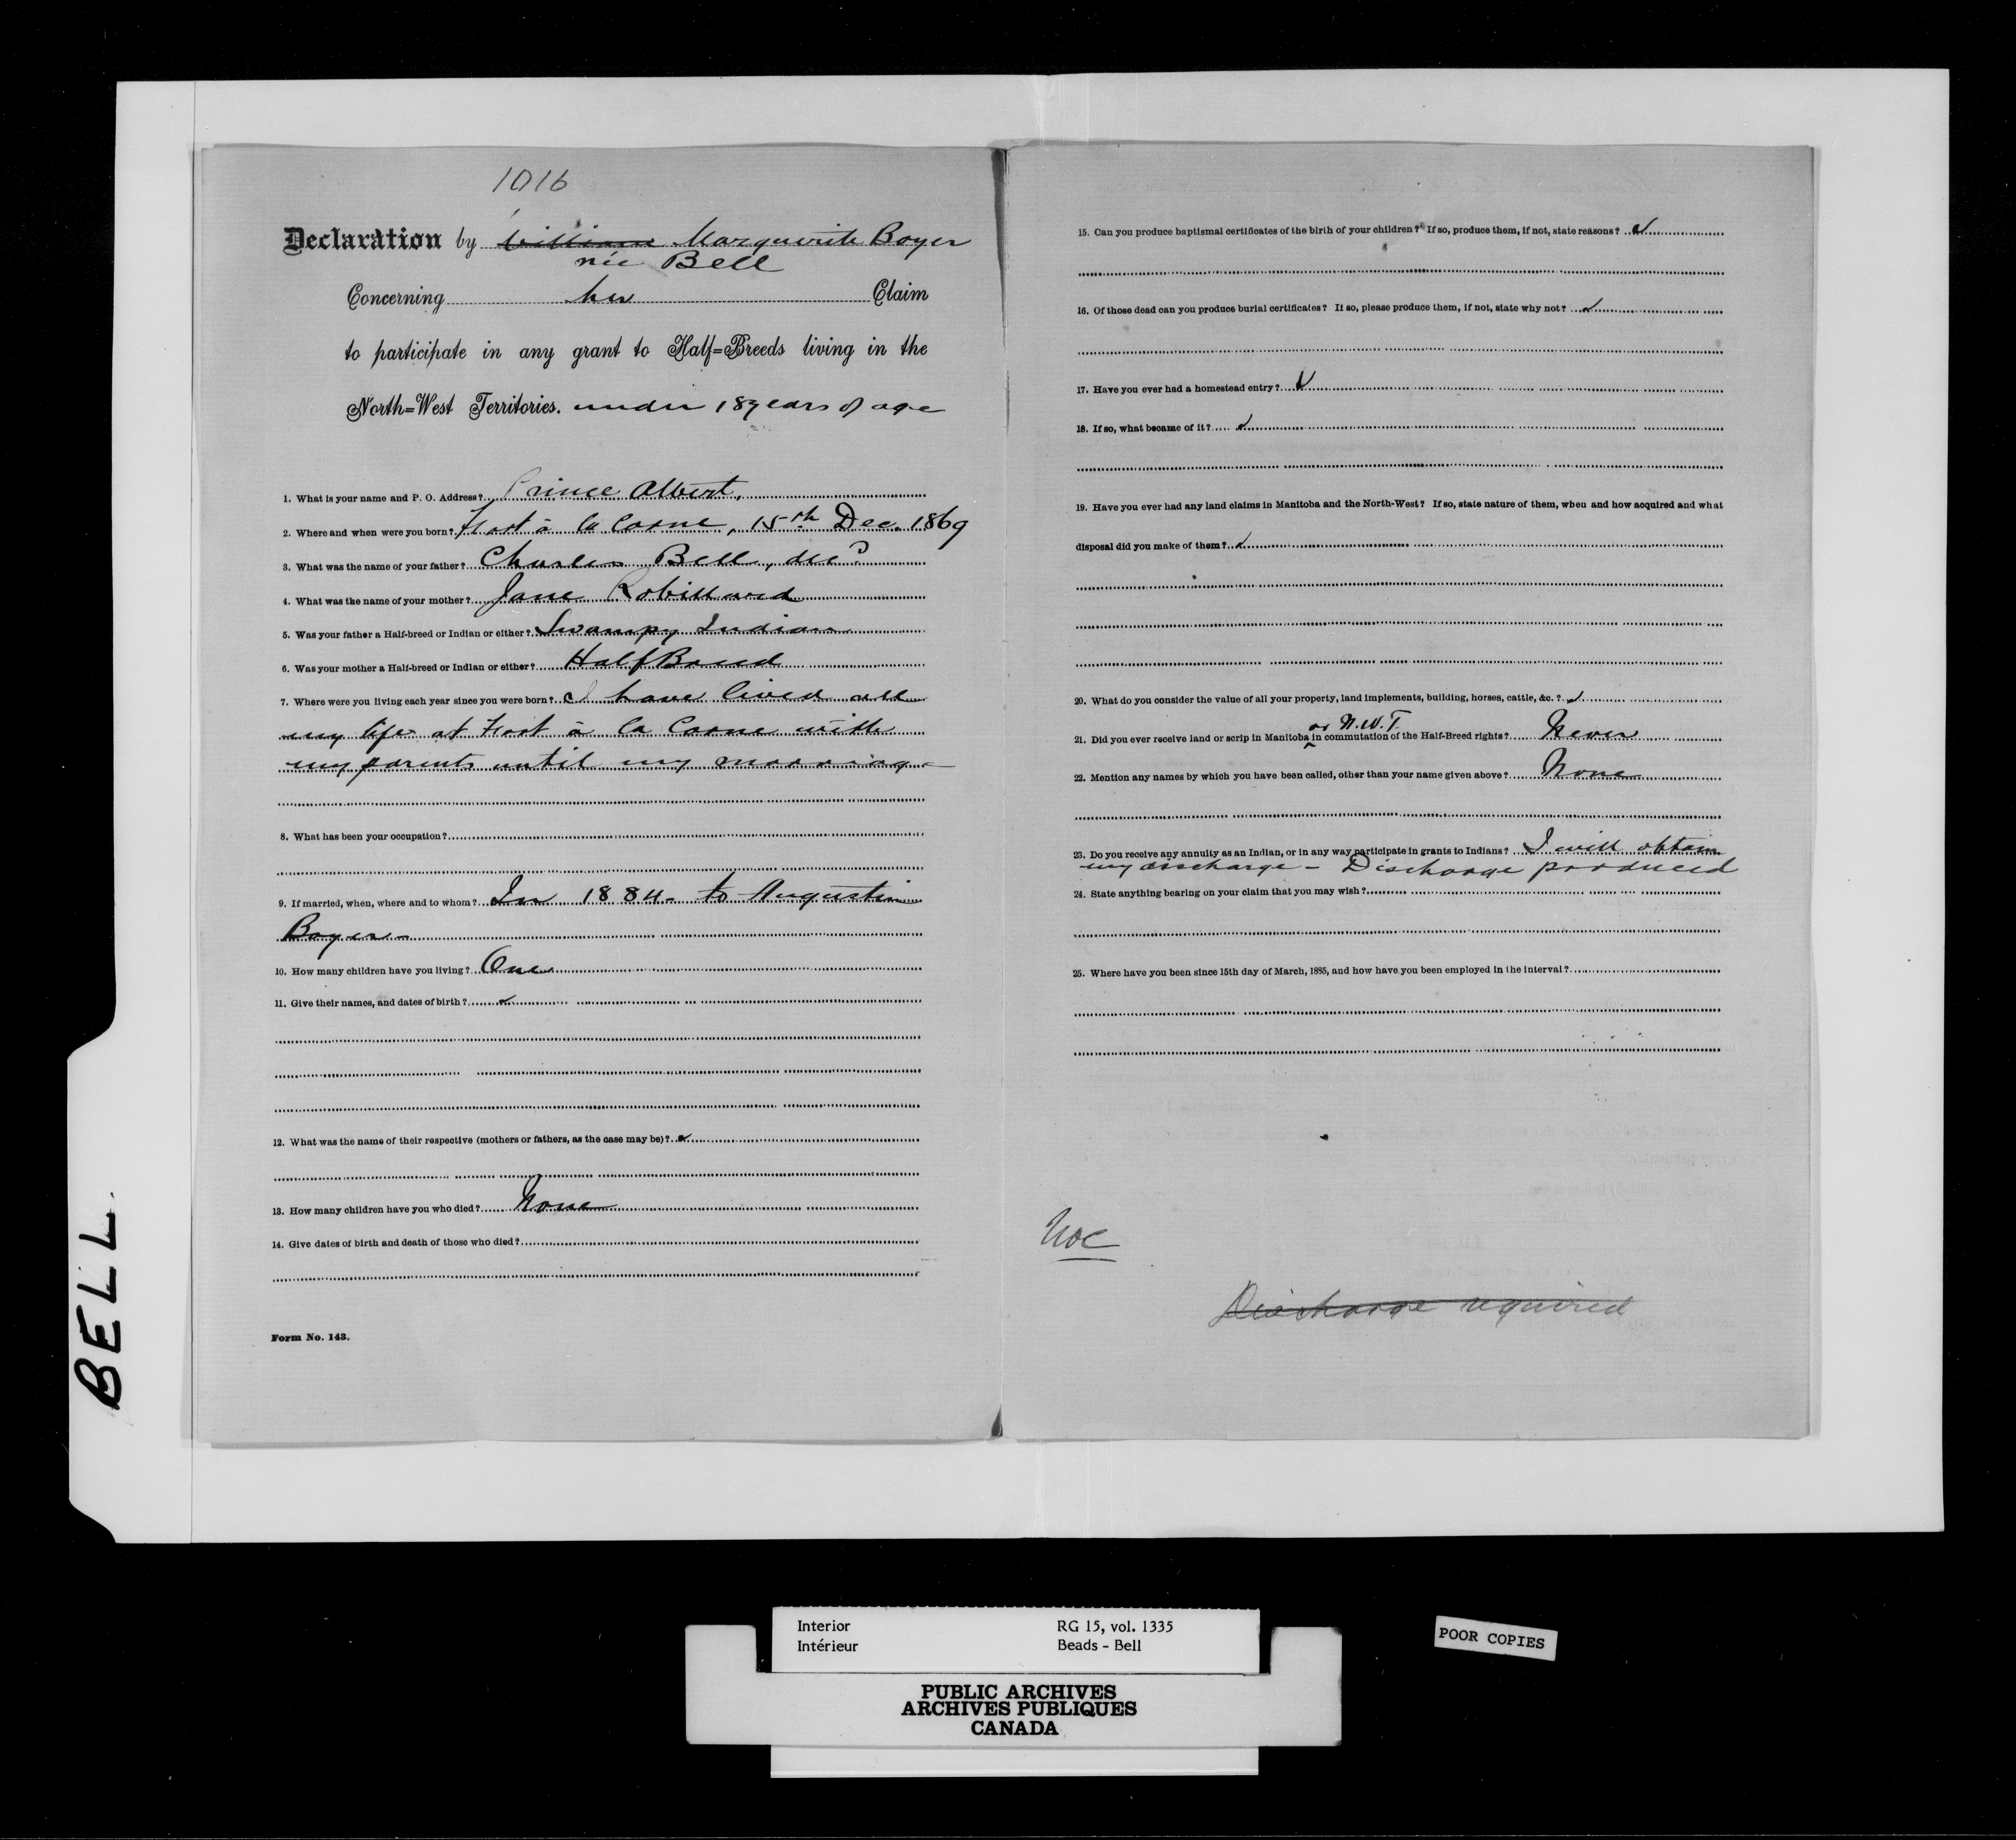 1016
Declaration by William Marguerite Boyer
née Bell
Concerning her Claim
to participate in any grant to Half=Breeds living in the
North=West Territories. under 18 years of age
1. What is your name and P. O. Address? Prince Albert.
2. Where and when were you born? Fort à la Corne, 15th Dec. 1869
3. What was the name of your father? Charles Bell, decd
4. What was the name of your mother? Jane Robillard
5. Was your father a Half-breed or Indian or either? Swampy Indian
6. Was your mother a Half-breed or Indian or either? Half Breed
7. Where were you living each year since you were born? I have lived all
my life at Fort à la Corne with
my parents until my marriage
8. What has been your occupation?
9. If married, when, where and to whom? In 1884 - to Augustin
Boyer -
10. How many children have you living? One
11. Give their names, and dates of birth?
12. What was the name of their respective (mothers or fathers, as the case may be)?
13. How many children have you who died? None
14. Give dates of birth and death of those who died?
Form No. 143.
15. Can you produce baptismal certificates of the birth of your children? If so, produce them, if not, state reasons?
16. Of those dead can you produce burial certificates? If so, please produce them, if not, state why not?
17. Have you ever had a homestead entry?
18. If so, what became of it?
19. Have you ever had any land claims in Manitoba and the North-West? If so, state nature of them, when and how acquired and what
disposal did you make of them?
20. What do you consider the value of all your property, land implements, building, horses, cattle, &c.?
or N.W.T.
21. Did you ever receive land or scrip in Manitoba in commutation of the Half-Breed rights? Never
22. Mention any names by which you have been called, other than your name given above? None
23. Do you receive any annuity as an Indian, or in any way participate in grants to Indians? I will obtain
my discharge - Discharge produced
24. State anything bearing on your claim that you may wish?
25. Where have you been since 15th day of March, 1885, and how have you been employed in the interval?
Discharge required
BELL.
Interior RG 15, vol. 1335
Intérieur Beads - Bell
POOR COPIES
PUBLIC ARCHIVES
ARCHIVES PUBLIQUES
CANADA